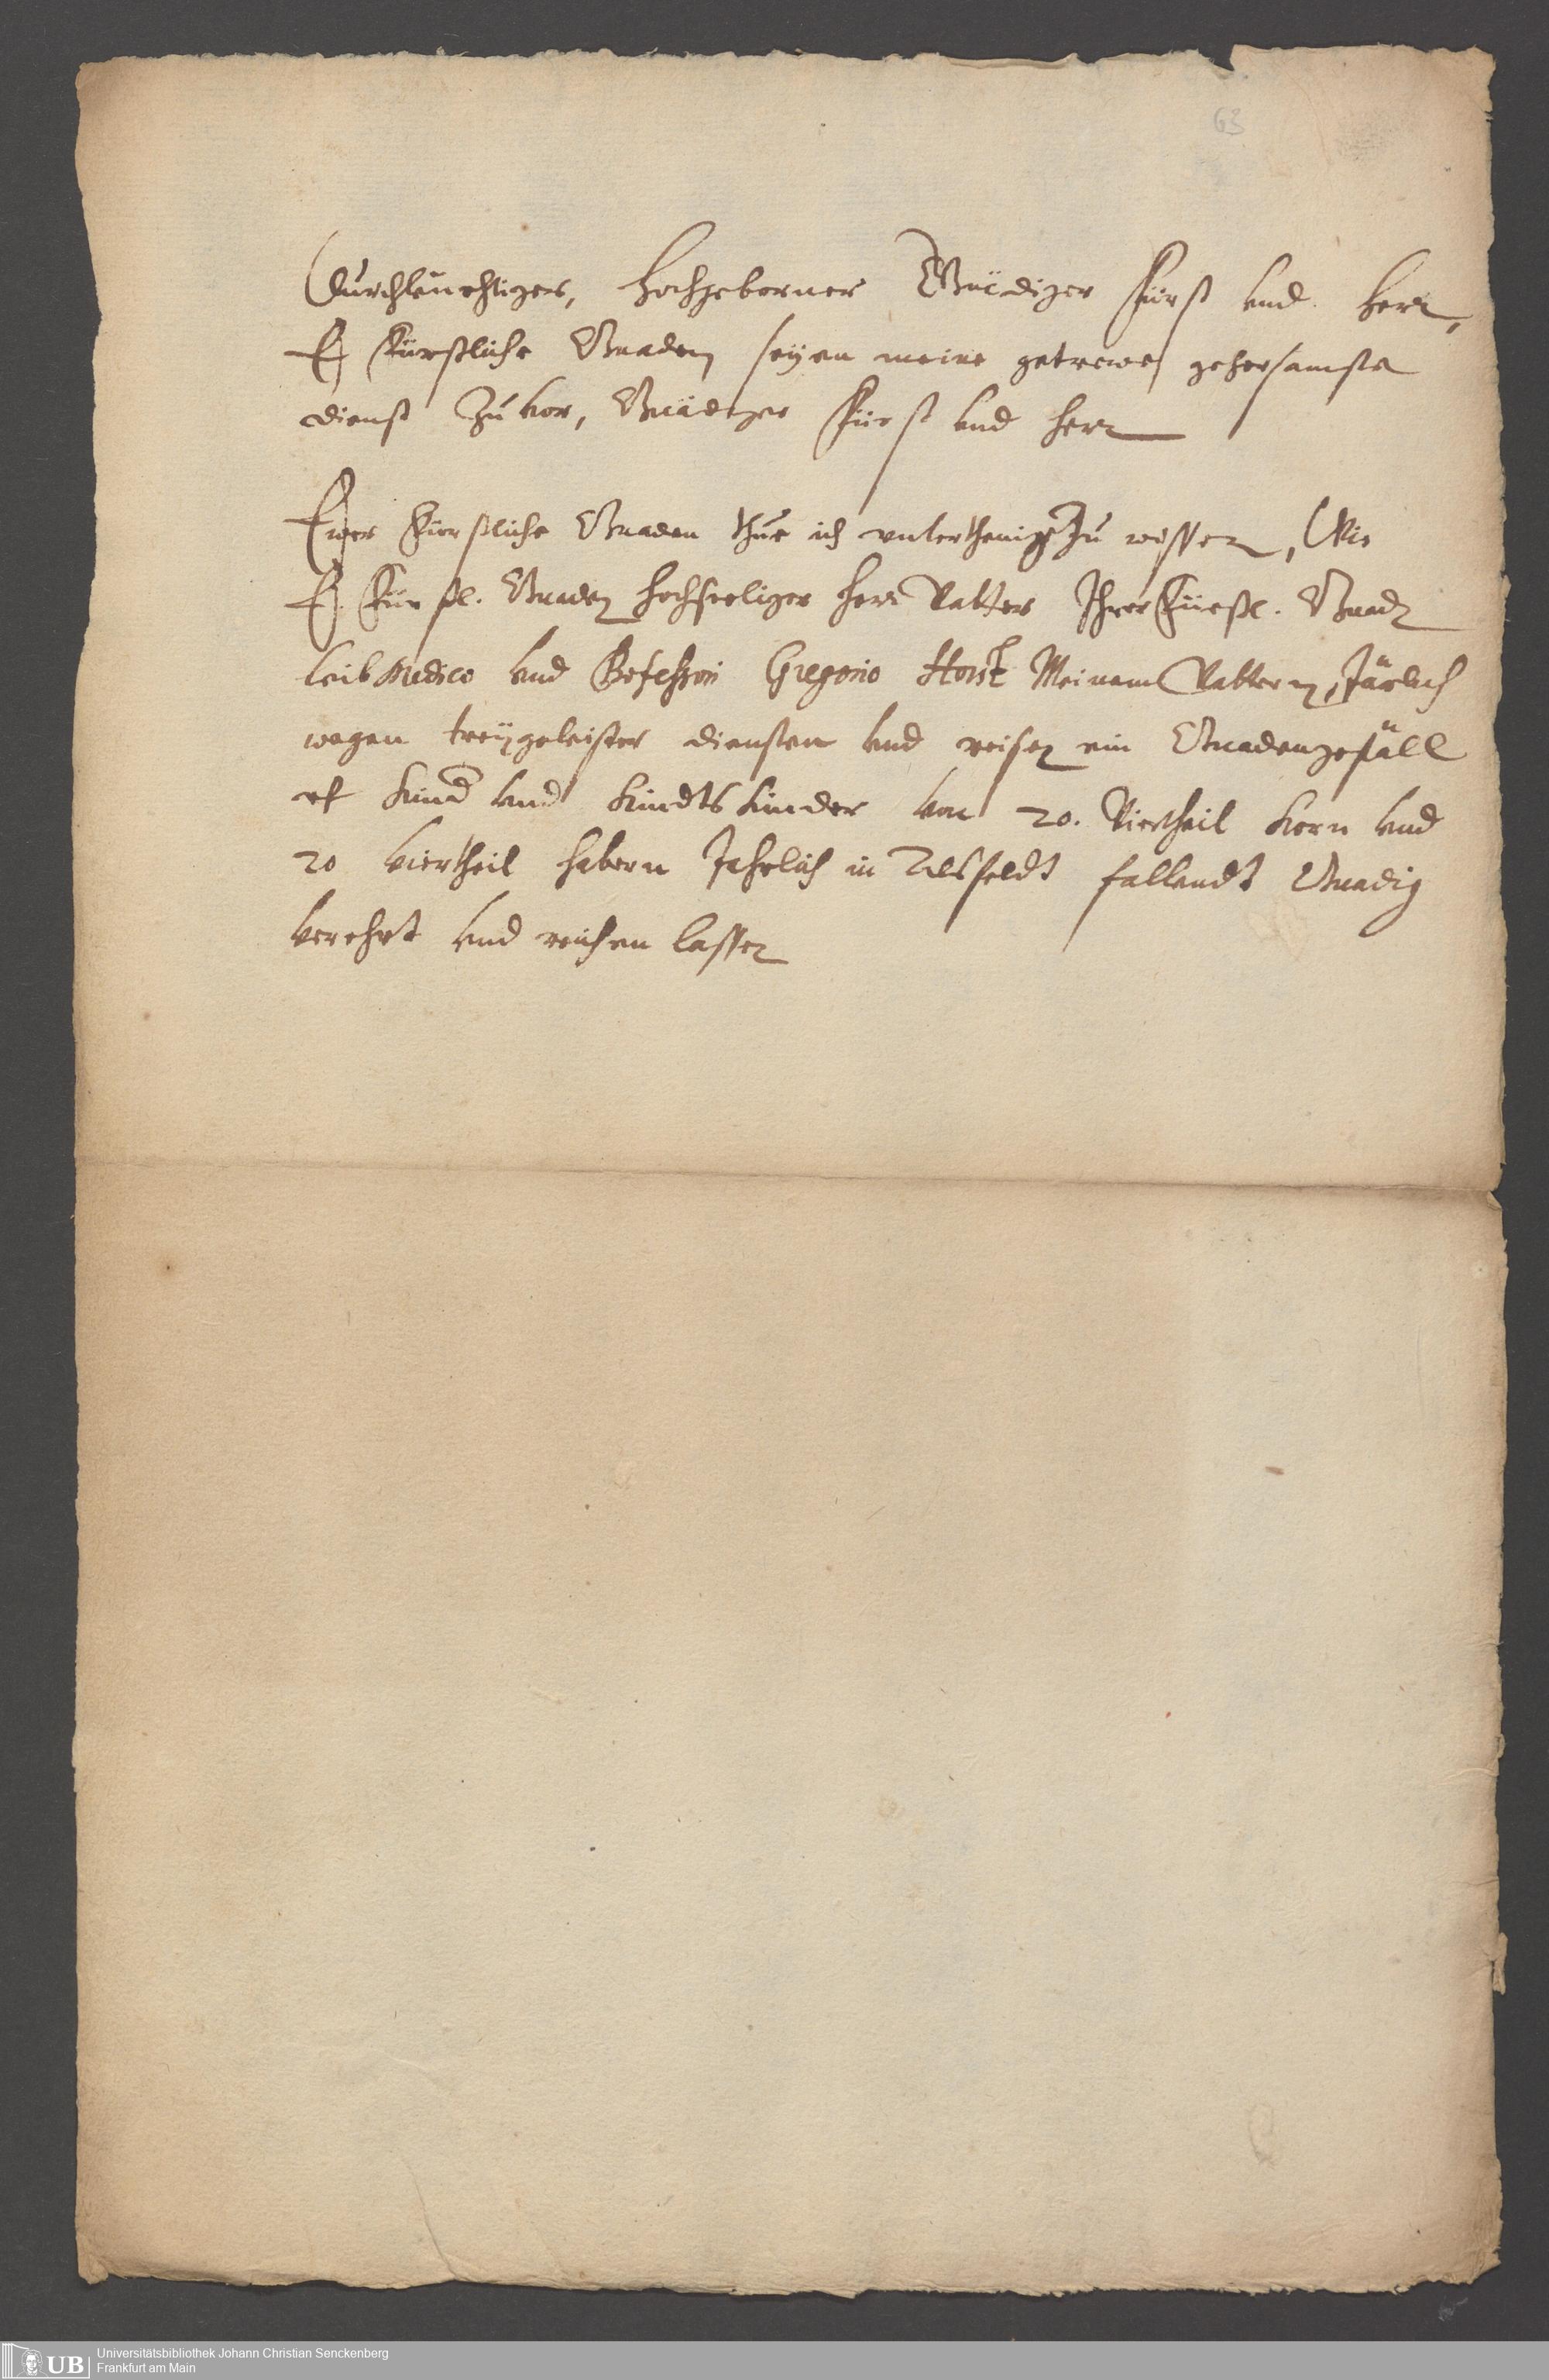 63
Durchleuchtiger, Hochgeborner Gnädiger Fürst vnd Herr,
E. Fürstliche Gnaden seyen meine getrewe gehorsamste
dienst Zuvor, Gnädiger Fürst vnd Herr
Ewer Fürstliche Gnaden thue ich vnterthenig Zu wissen, Wie
E. Fürstl. Gnaden Hochseeliger Herr Vatter Ihrer Fürstl. Gnad
Leib Medico vnd Professori Gregorio Horst Meinem Vattern, Järlich
wegen trewgeleister diensten vnd reisen ein Gnadengefäll
vf Kind vnd Kindts Kinder von 20. Viertheil Korn vnd
20 viertheil habern Jehrlich in Alsfeldt fallendt Gnadig
verehrt vnd reichen lassen
UB
Universitätsbibliothek Johann Christian Senckenberg
Frankfurt am Main